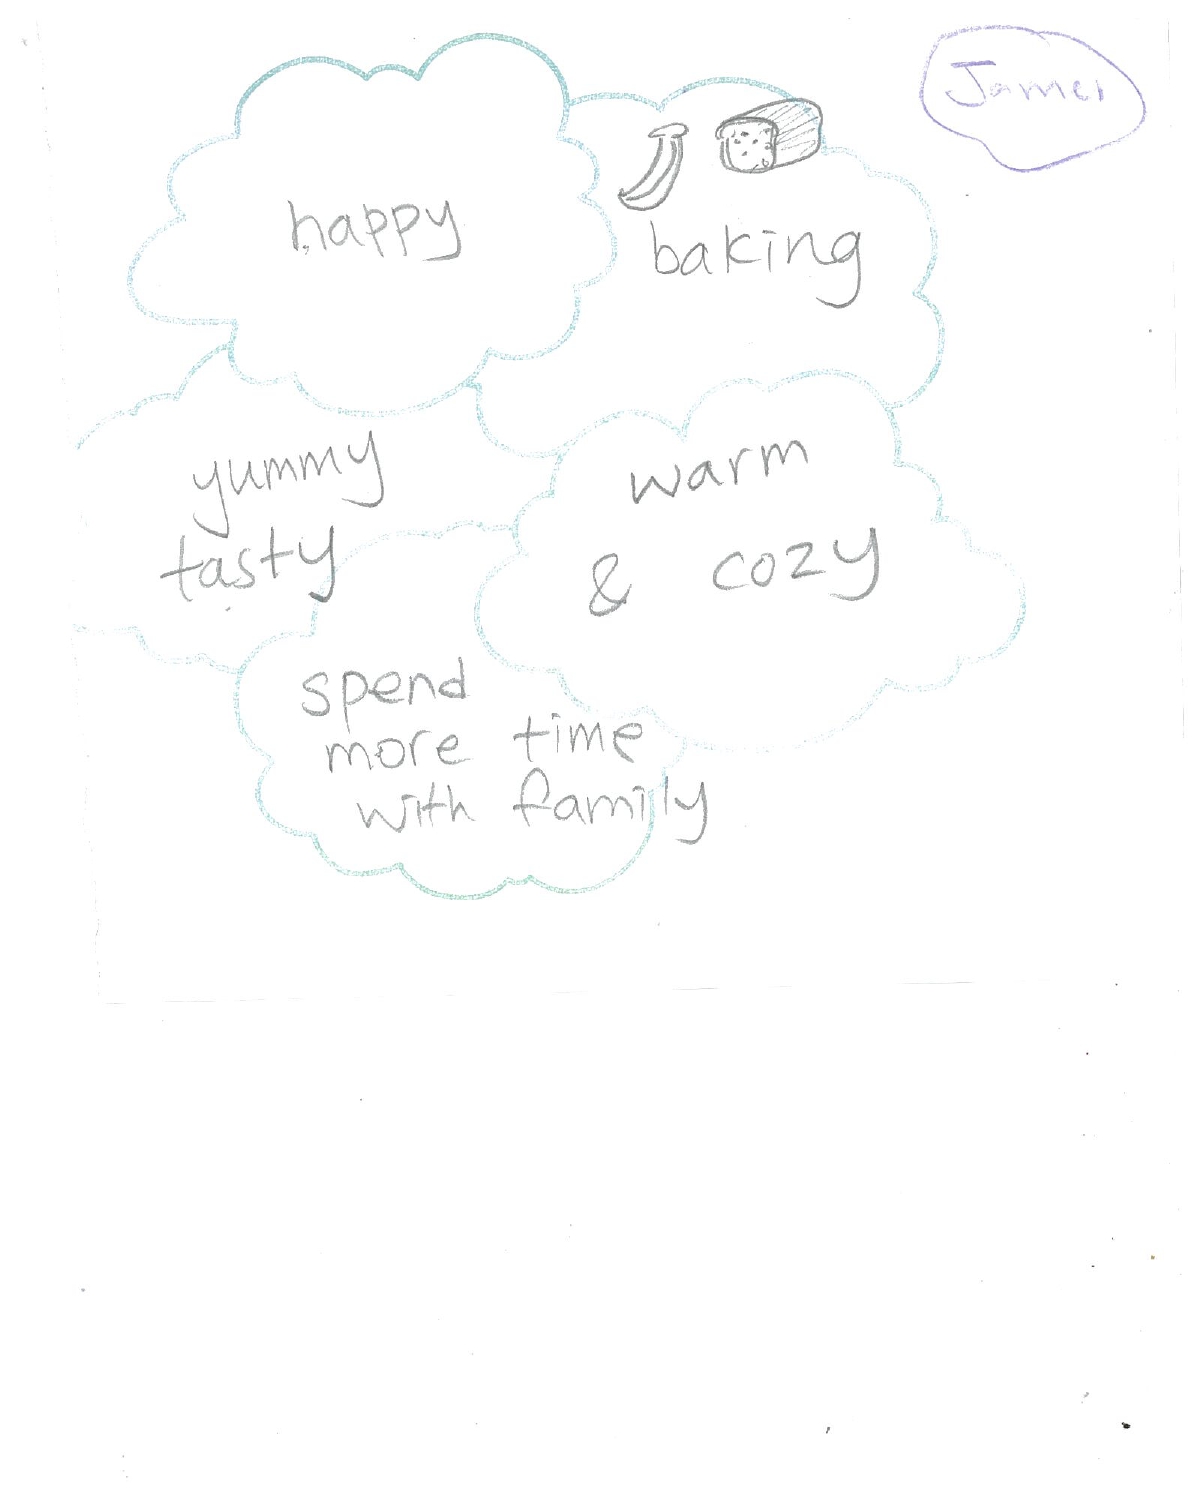 Jamei
happy
baking
yummy
tasty
warm
& cozy
spend
more time
with family